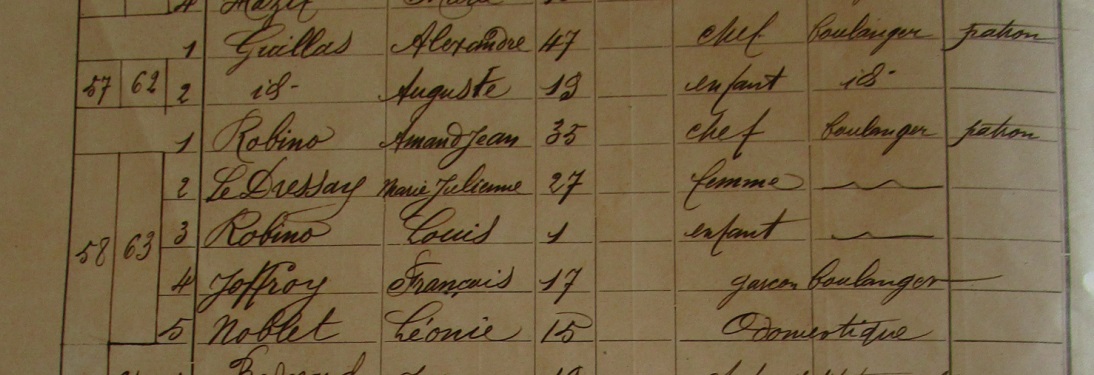 4 Hazif
1 Guillas Alexandre 47 chef boulanger patron
57 62 2 id- Auguste 19 enfant id-
1 Robino Amand Jean 35 chef boulanger patron
2 Le Dressay Marie Julienne 27 femme
3 Robino Louis 1 enfant
58 63
4 Joffroy François 17 garcon boulanger
5 Noblet Léonie 15 domestique